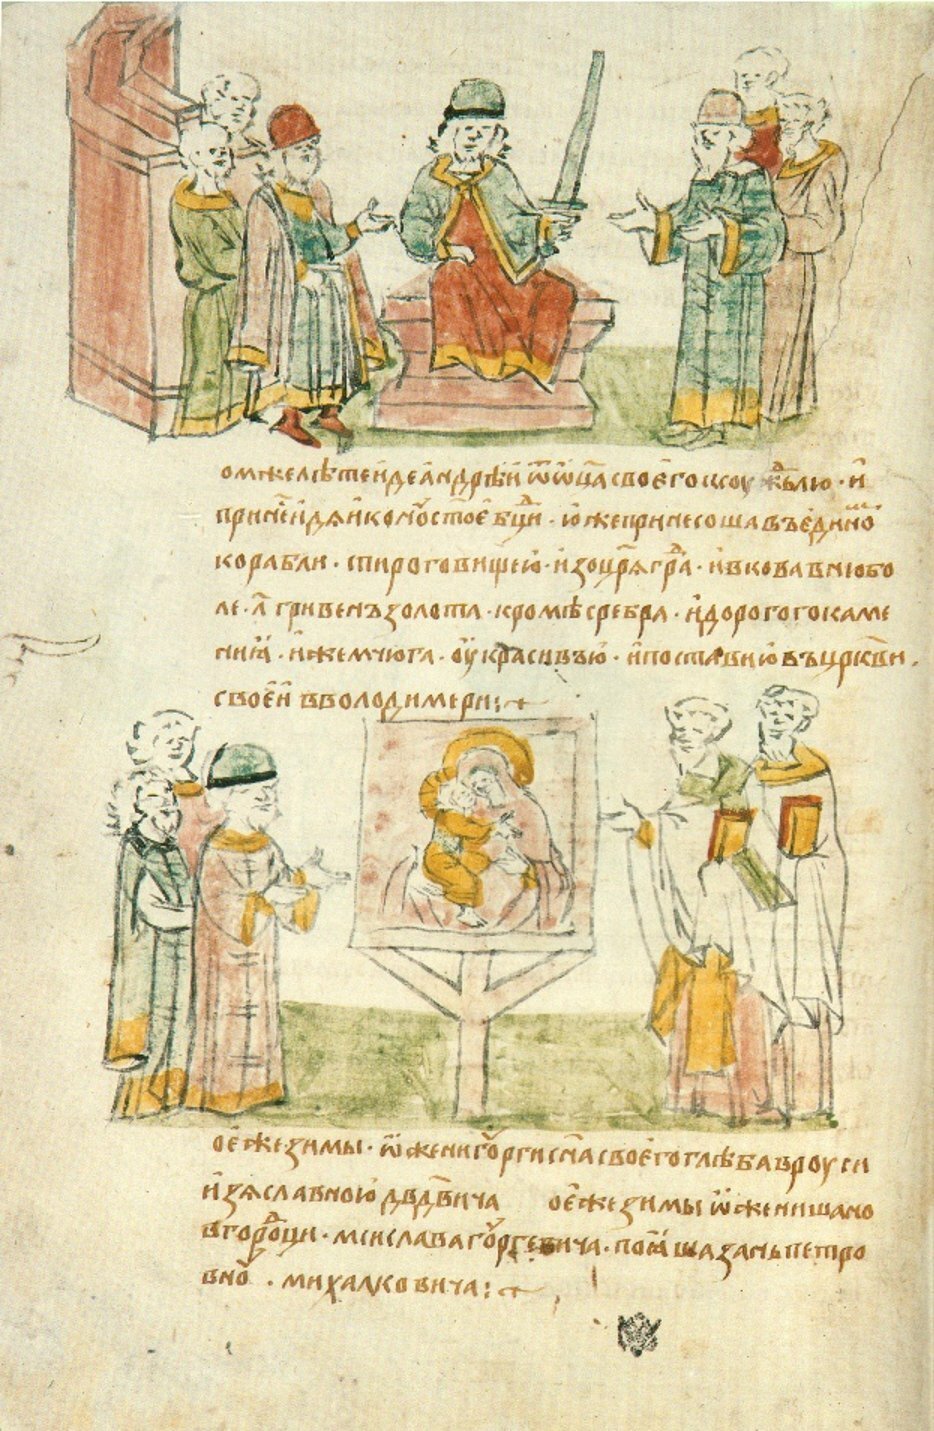 ом же лѣте иде андрѣи ѿ ѿца своего к соуждалю · и
принесе идя икону ст҃ое бц҃и · юже принесоша въ единомь
корабли · с пирогощею · изо цр҃яграда · и вкова в ню бо
ле · л҃ гривенъ золота · кромѣ сребря · и дорогого каме
ниӕ · и жемчюга · оукрасивъю · и постави ю въ црк҃ви ·
своеи в володимери :·
ое же зимы · ѿжени гюрги сн҃а своего глѣба в роуси
изяславною дв҃дв҃ича ое же зимы ѿженишано
вгородци · мсислава гюргевича · поӕша за нь петро
вну · михалковича :·